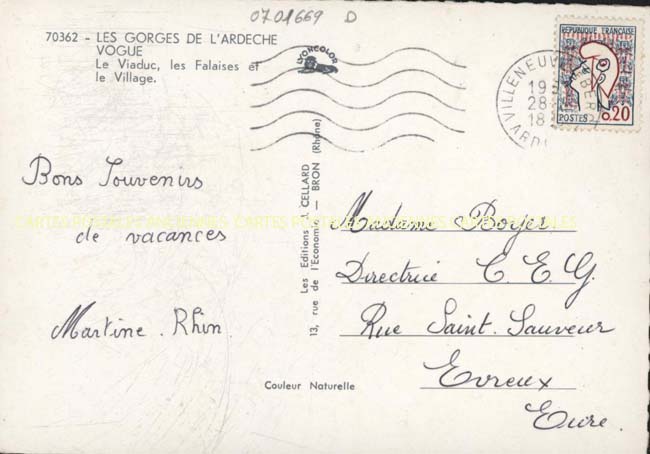 0701669 D
70362 - LES GORGES DE L'ARDECHE
VOGUE
Le Viaduc, les Falaises et
le Village.
LYONCOLOR
VILLENEUVE
19
28
18
ARD
REPUBLIQUE FRANÇAISE
POSTES
0,20
Bons Souvenirs
de vacances
Martine. Rhin
CARTES POSTALES ANCIENNES CARTES POSTALES ANCIENNES CARTES POSTALES
Les Editions J. CELLARD
13, rue de l'Economie - BRON (Rhône)
Couleur Naturelle
Madame Boyer
Directrice C. E. G.
Rue Saint. Sauveur
Evreux
Eure.